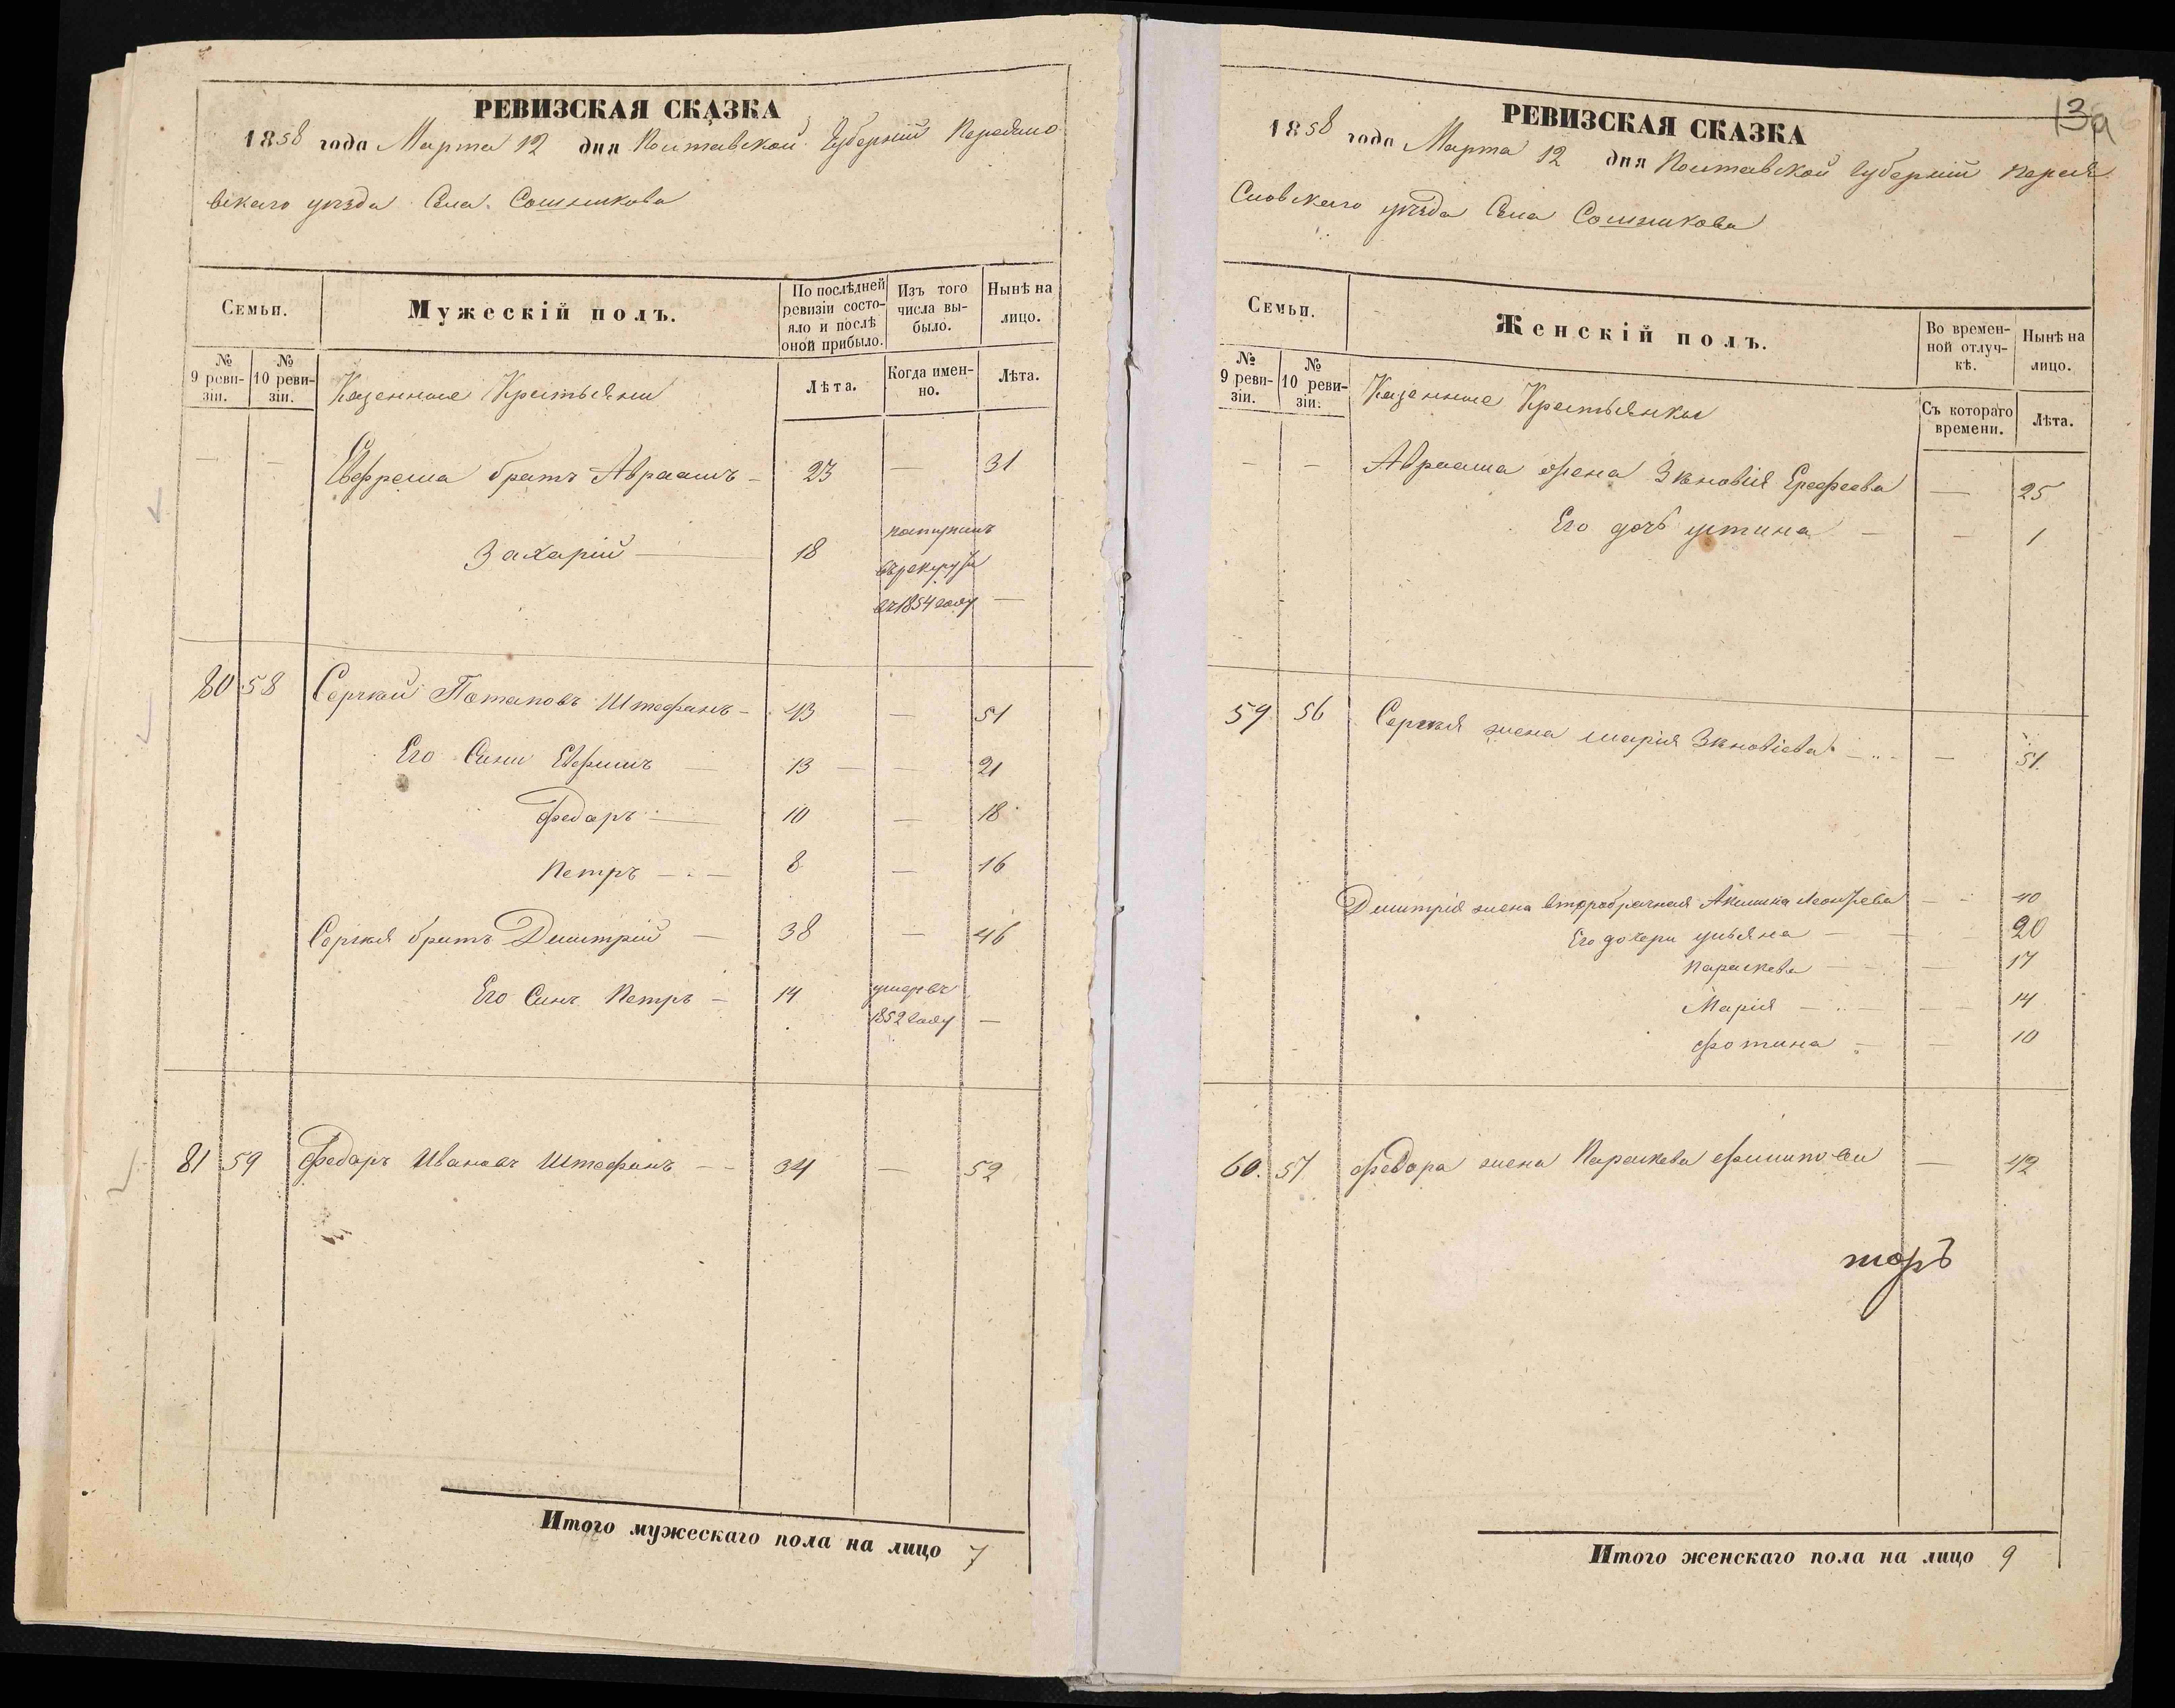 РЕВИЗСКАЯ СКАЗКА
1858 года Марта 12 дня Полтавской Губерніи Переясло
вскаго уезда Села Сошникова
Семьи.
Мужескій полъ.
По послѣдней ревизіи состояло и послѣ оной прибыло.
Изъ того числа выбыло.
Нынѣ на лицо.
№ 9 ревизіи.
№ 10 ревизіи.
Казенные Крестьяни
Лѣта.
Когда именно.
Лѣта.
— — Ефрема братъ Авраамъ — 23 — 31
Захарій — 18 поступилъ
въ рекруты
въ 1854 году —
80 58 Сергий Потаповъ Штефанъ — 43 — 51
Его Сини Ефимъ — 13 — — 21
Федоръ — 10 — 18
Петръ — 8 — 16
Сергия братъ Димитрий — 38 — 46
Его Синъ Петръ — 14 умеръ въ
1852 году —
81 59 Федоръ Ивановъ Штефанъ — — 34 — 52
Итого мужескаго пола на лицо 7
13а
РЕВИЗСКАЯ СКАЗКА
1858 года Марта 12 дня Полтавской Губерніи Перея
Словскаго уезда Села Сошникова
Семьи.
Женскій полъ.
Во временной отлучкѣ.
Нынѣ на лицо.
№ 9 ревизіи.
№ 10 ревизіи.
Казенные Крестьянки
Съ котораго времени.
Лѣта.
— — Авраама жена Зѣновія Ерофеева — 25
Его дочь устина — — 1
59 56 Сергия жена марія Зѣновіева — — 51
Димитрія жена второбрачная Акилина Леонтьева — 40
Его дочери ульяна — — 20
Параскева — — 17
Марія — — — 14
Фотина — — 10
60. 57 Федора жена Параскева Филипова — 42
Итого женскаго пола на лицо 9